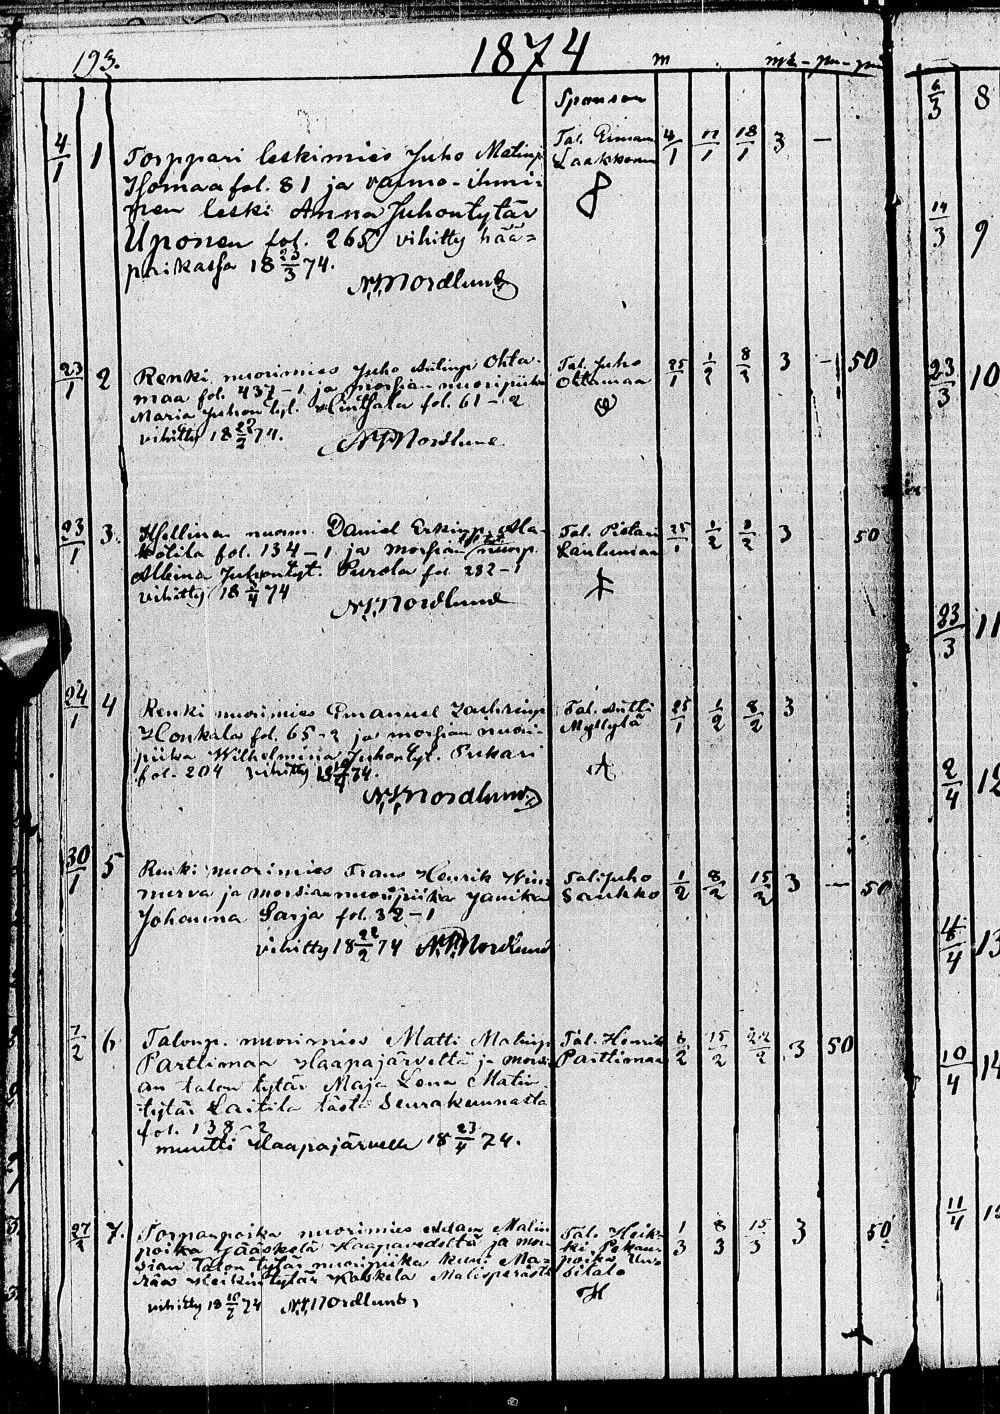 193.
1874
m
mk - pn - pn
Sponson
4/1 1 Torppari leskimies Juho Matinp
Ilomaa fol. 81 ja vaimo-ihmi-
nen leski Anna Juhontytär
Uponen fol. 265 vihitty hää-
paikassa 18 23/3 74.
N.P. Nordlund
Tal.
Laakkonen
4/1 11/1 18/1 3 —
23/1 2 Renki nuorimies Juho Antinp Ohta-
maa fol. 437-1 ja morsian nuoripiika
Maria Juhontyt. fol. 61-2
vihitty 18 22/2 74.
N.P. Nordlund
Tal. Juho
Ohtamaa
25/1 1/2 8/2 3 — 50
23/1 3. nuorm. Daniel Erkinp. Ala-
fol. 134-1 ja morsian
Albina Juhontyt. Purola fol 282-1
vihitty 18 74
N.P. Nordlund
Tal. Pietari
25/1 1/2 8/2 3 50
24/1 4 Renki nuorimies Emanuel
Honkala fol. 65-2 ja morsian nuori-
piika Wilhelmina Juhontyt. Pukari
fol. 204 vihitty 74.
N.P. Nordlund
Tal. Antti
Myllylä
A
25/1 1/2 8/2 3
30/1 5 Renki nuorimies Frans Henrik Win-
nerva ja morsian nuoripiika
Johanna Sarja fol. 32-1
vihitty 18 22/2 74 N.P. Nordlund
Tal. Juho
Saukko
1/2 8/2 15/2 3 — 50
7/2 6 Talonp. nuorimies Matti Matinp
Parttimaa Haapajärveltä ja morsi-
an talon tytär Maja Lena Matin
tytär Laitila tästä Seurakunnasta
fol. 138-2
muutti Haapajärvelle 18 23/4 74.
Tal. Henrik
Parttimaa
8/2 15/2 22/2 3 50
27/2 7. Torpanpoika nuorimies Adam Matin
poika Jääskelä Haapavedeltä ja mor-
sian talon tytär nuoripiika
Heikintytär Koskela Malisperästä
vihitty 18 74 N.P. Nordlund
Tal. Heik-
ki Pekan-
poika Uu-
sitalo
H
1/3 8/3 15/3 3 50
6/3 8
14/3 9
23/3 10
23/3 11
2/4 12
4/4 13
10/4 14
11/4